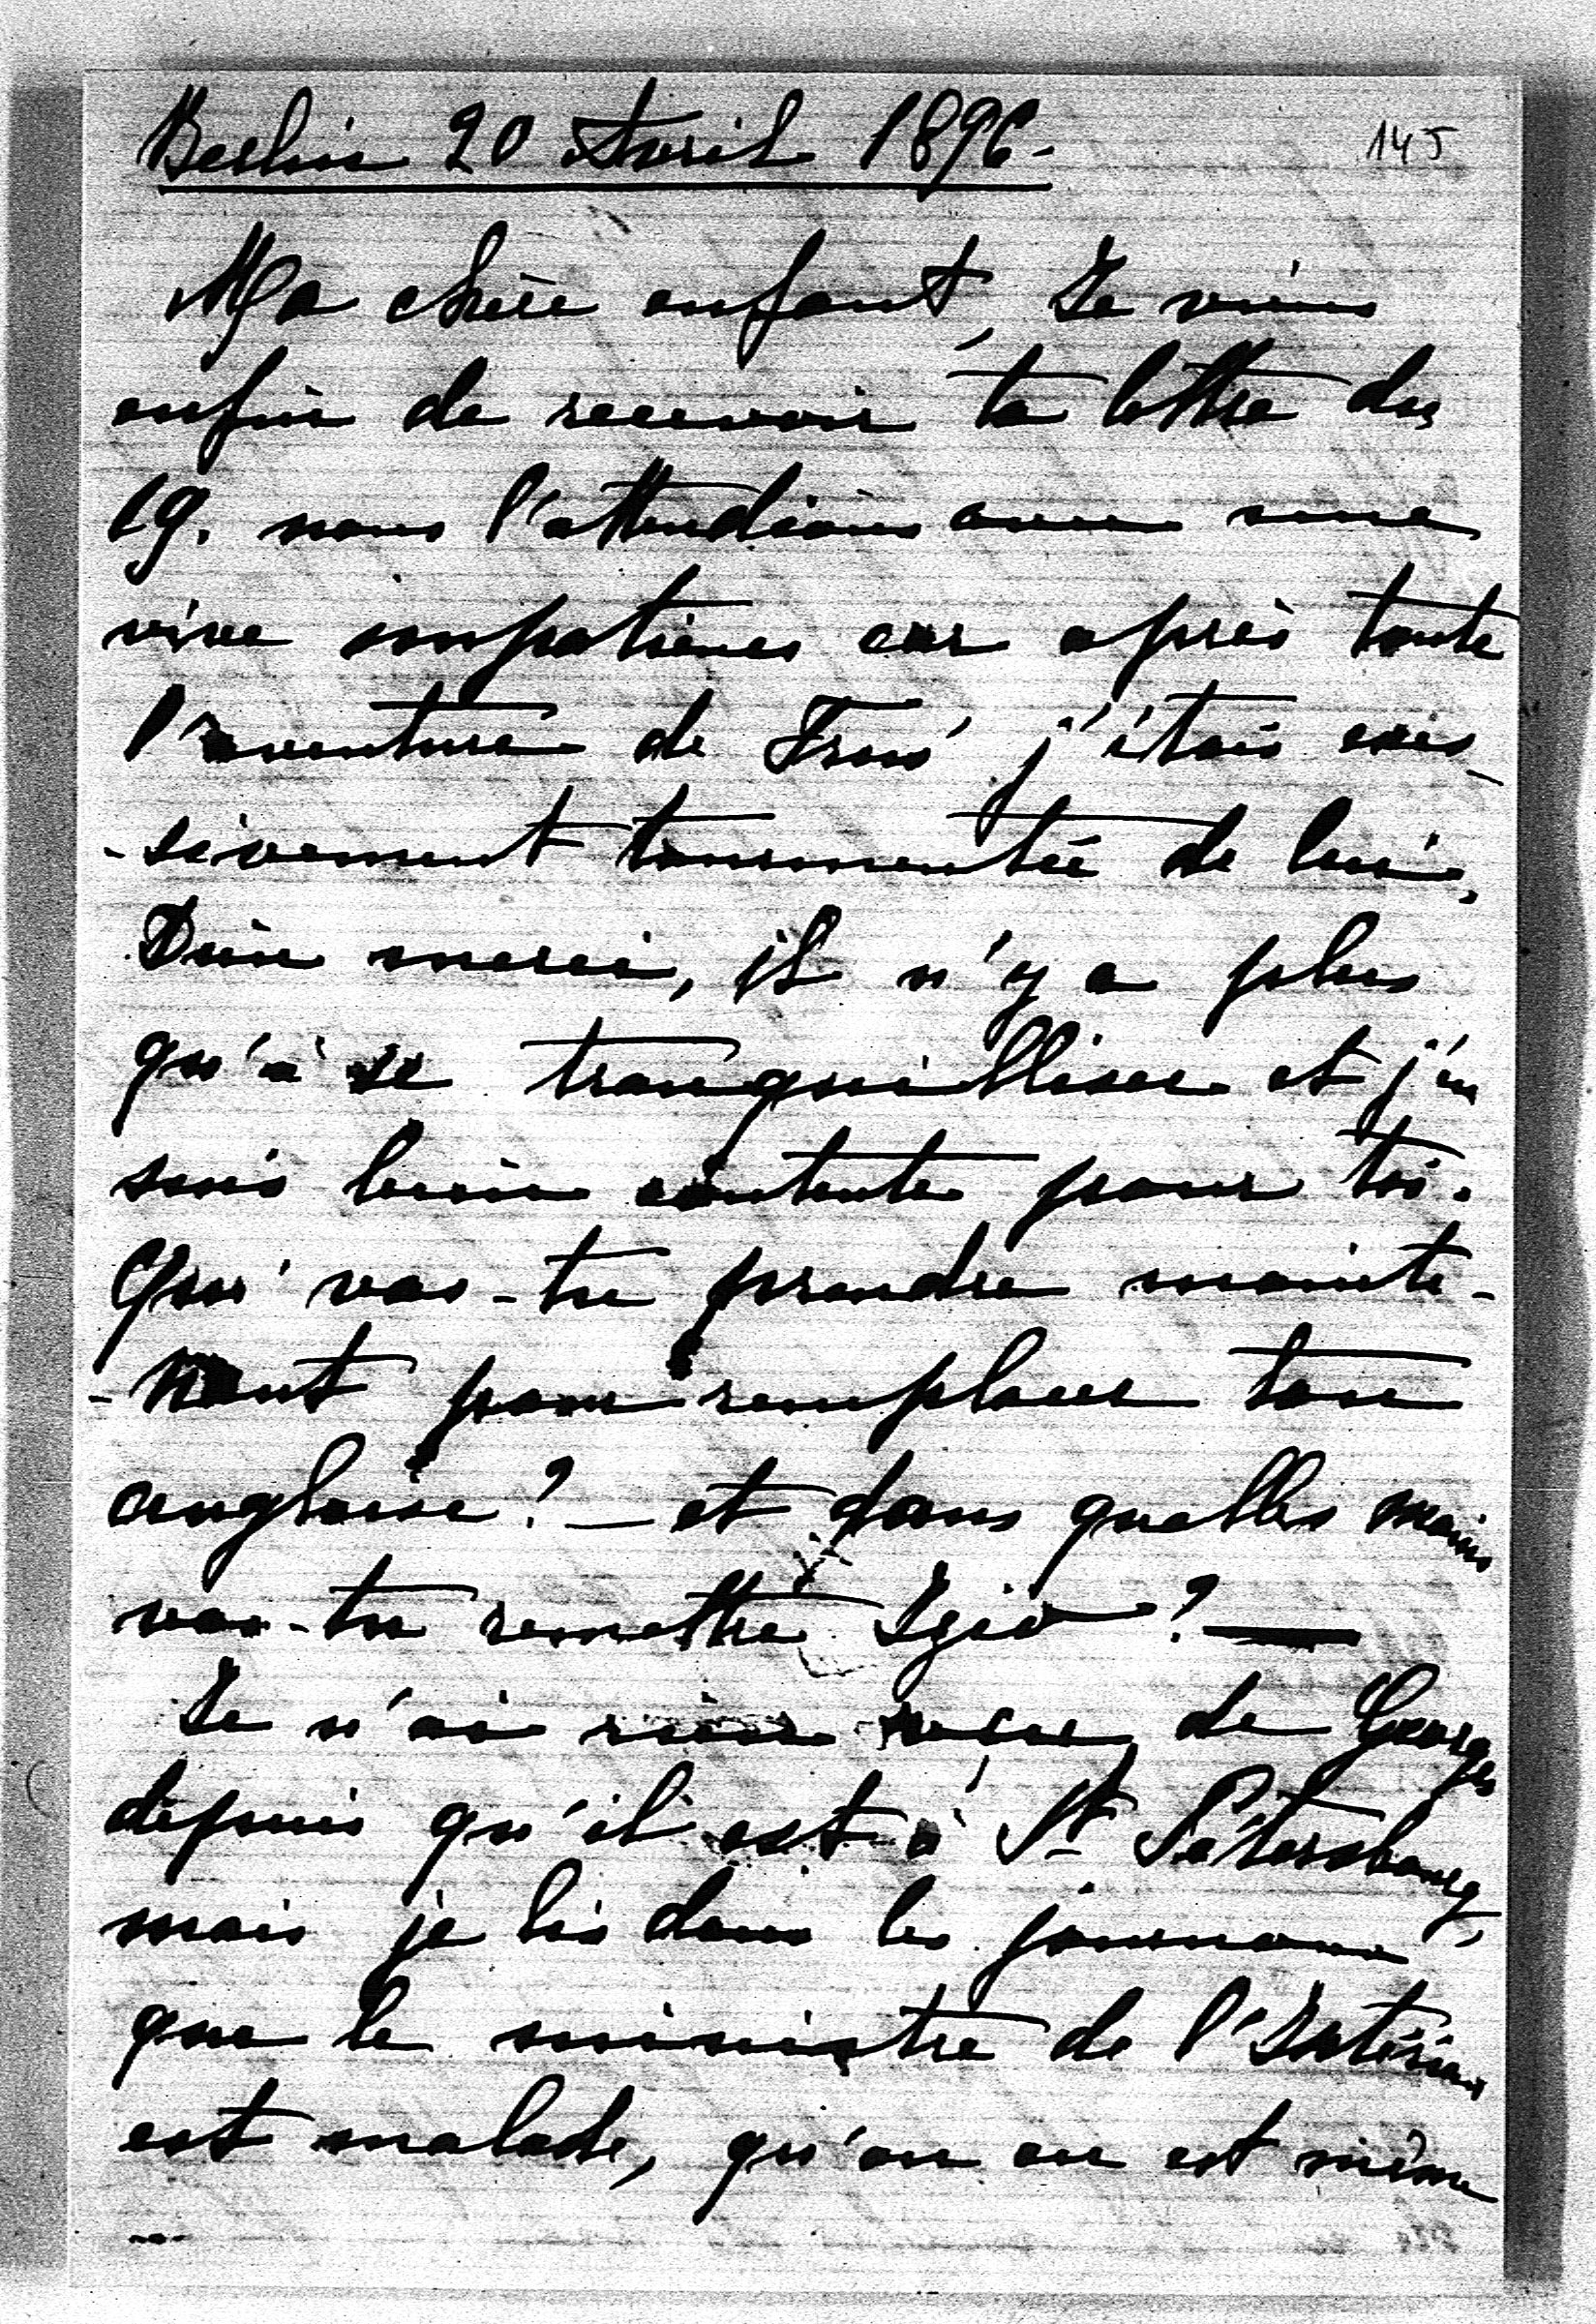 Berlin 20 Avril 1896.
145
Ma chère enfant, Je viens
enfin de recevoir ta lettre du
19. nous l'attendions avec une
vive impatience car après toute
l'aventure de j'étais exces-
-sivement tourmentée de lui,
Dieu merci, il n'y a plus
qu'à se tranquilliser et j'en
suis bien contente pour toi.
Qui vas-tu prendre mainte-
-nant pour remplacer ton
anglaise? — et dans quelles mains
vas-tu remettre ? —
Je n'ai rien reçu de Georges
depuis qu'il est à St Pétersbourg,
mais je lis dans les journaux
que le ministre de l'Intérieur
est malade, qu'on en est même